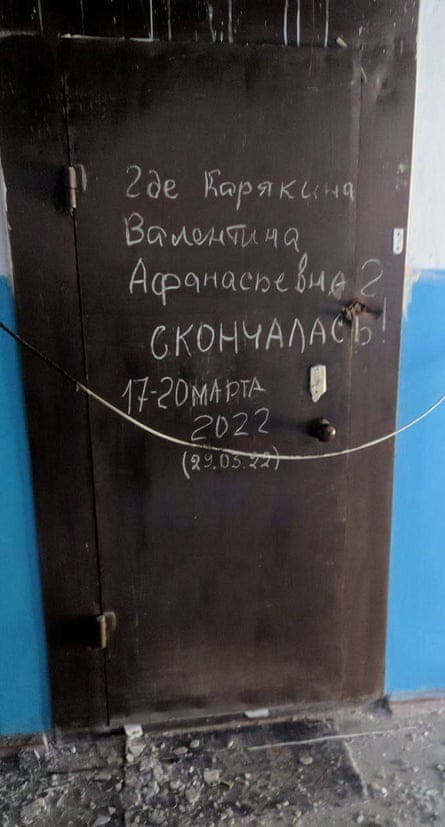 Где Карякина
Валентина
Афанасьевна ?
СКОНЧАЛАСЬ!
17-20 МАРТА
2022
(29.05.22)